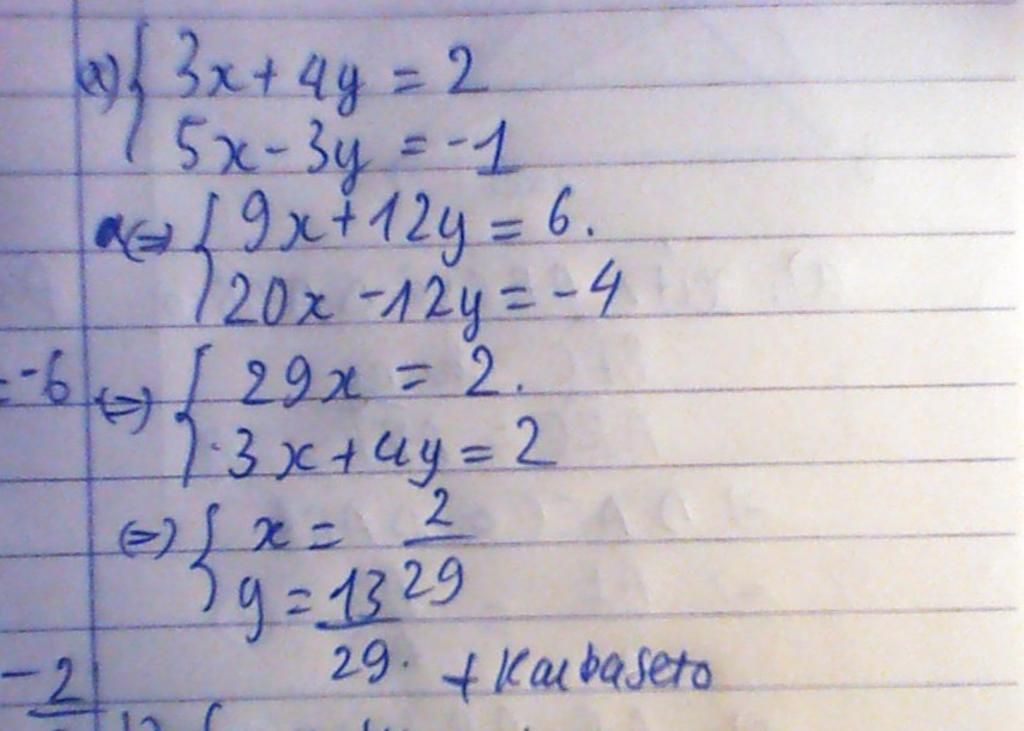 a) { 3x + 4y = 2
5x - 3y = -1
⇔ { 9x + 12y = 6.
20x - 12y = -4
= -6
⇔ { 29x = 2.
3x + 4y = 2
⇔ { x = 2/29
y = 13/29.
-2